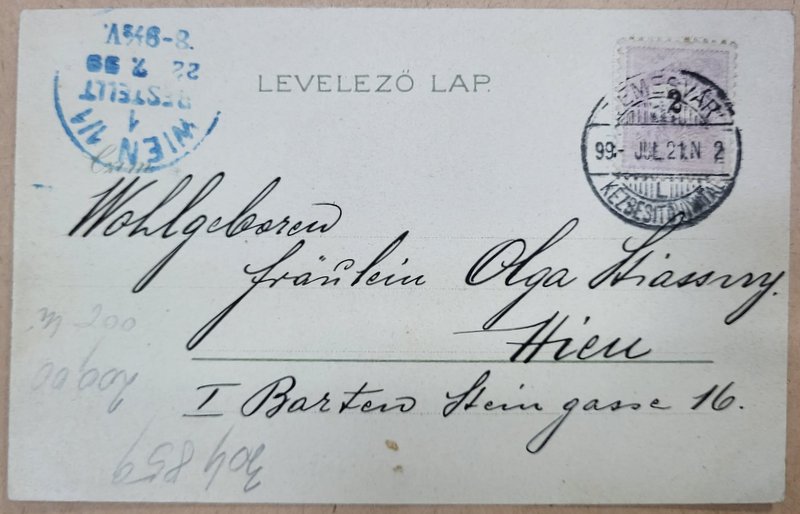 LEVELEZŐ LAP.
WIEN 1/1
1
BESTELLT
22 7 99
8-9½V.
TEMESVÁR
2
99 - JUL. 21. N 2
L
KÉZBESITŐ HIVATAL
Czim
Wohlgeboren
Fräulein Olga Stiassny.
Wien
I Barten Stein gasse 16.
200
304 859